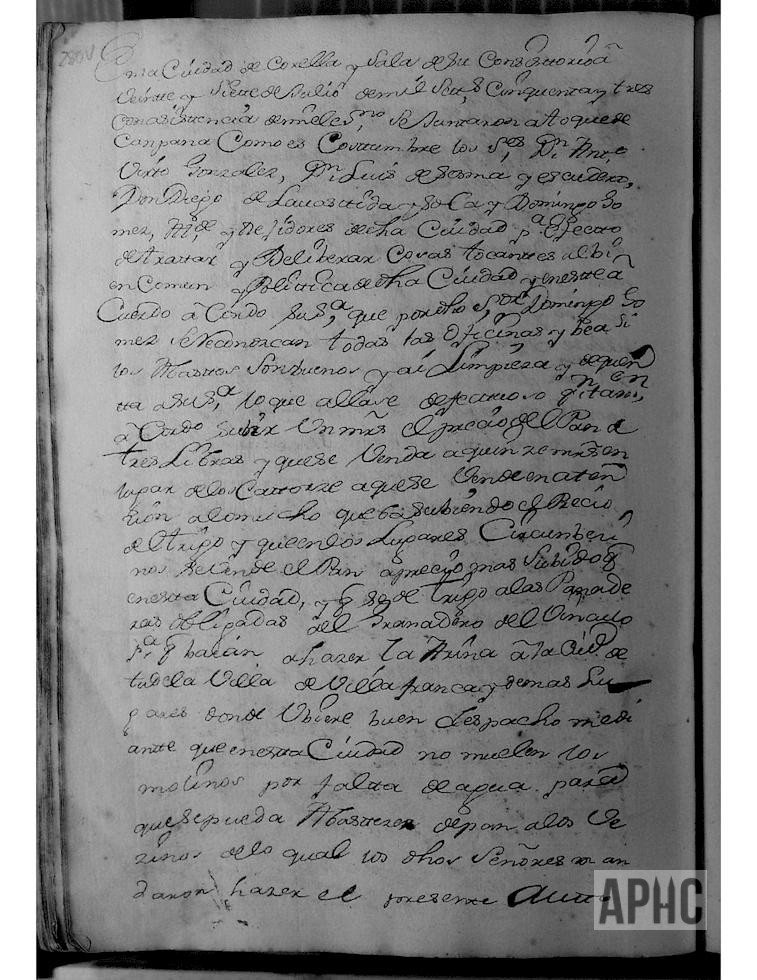 280v
En la Ciudad de Corella y Sala de su Consistorio a
Veinte y Siette de Jullio de mil Settos Cinquenta y tres
Con asistencia de mi el essno se Juntaron a toque de
Canpana Como es Costumbre los Sres Dn Antto
Virto Gonzalez, Dn Luis de Sesma y escudero,
Don Diego de y Domingo Go
mez, Alde y Rejidores de dha Ciudad pa Efecto
de trattar y Deliberar Cosas tocantes al bi
en Comun y Politica de dha Ciudad y en este a
Cuerdo a Cordo Su Sa que por dho Sor Domingo Go
mez se Reconozcan todas las Oficinas y bea si
los Son buenos y ai Limpieza y de quen
ta a Su Sa lo que allase defectuoso
a Cordo subir Un mrs el precio del Pan de
tres Libras y que se Venda a quinze mrs en
lugar de los Cattorze a que se Vende en aten
zion a lo mucho que ba subiendo el Precio
del trigo y que en los Lugares Circunbeci
nos se Vende el Pan a precio mas Subido q
en esta Ciudad, y q se de trigo a las Panade
ras obligadas del Granadero del Vinculo
pa q baian a hazer la Arina a la Ciud de
tudela Villa de Villafranca y demas Lu
gares donde Ubiere buen despacho medi
ante que en esta Ciudad no muelen los
molinos por falta de agua para
que se pueda Abasttezer de pan a los Ve
zinos de lo qual los dhos Señores man
daron hazer el presente Autto
APHC